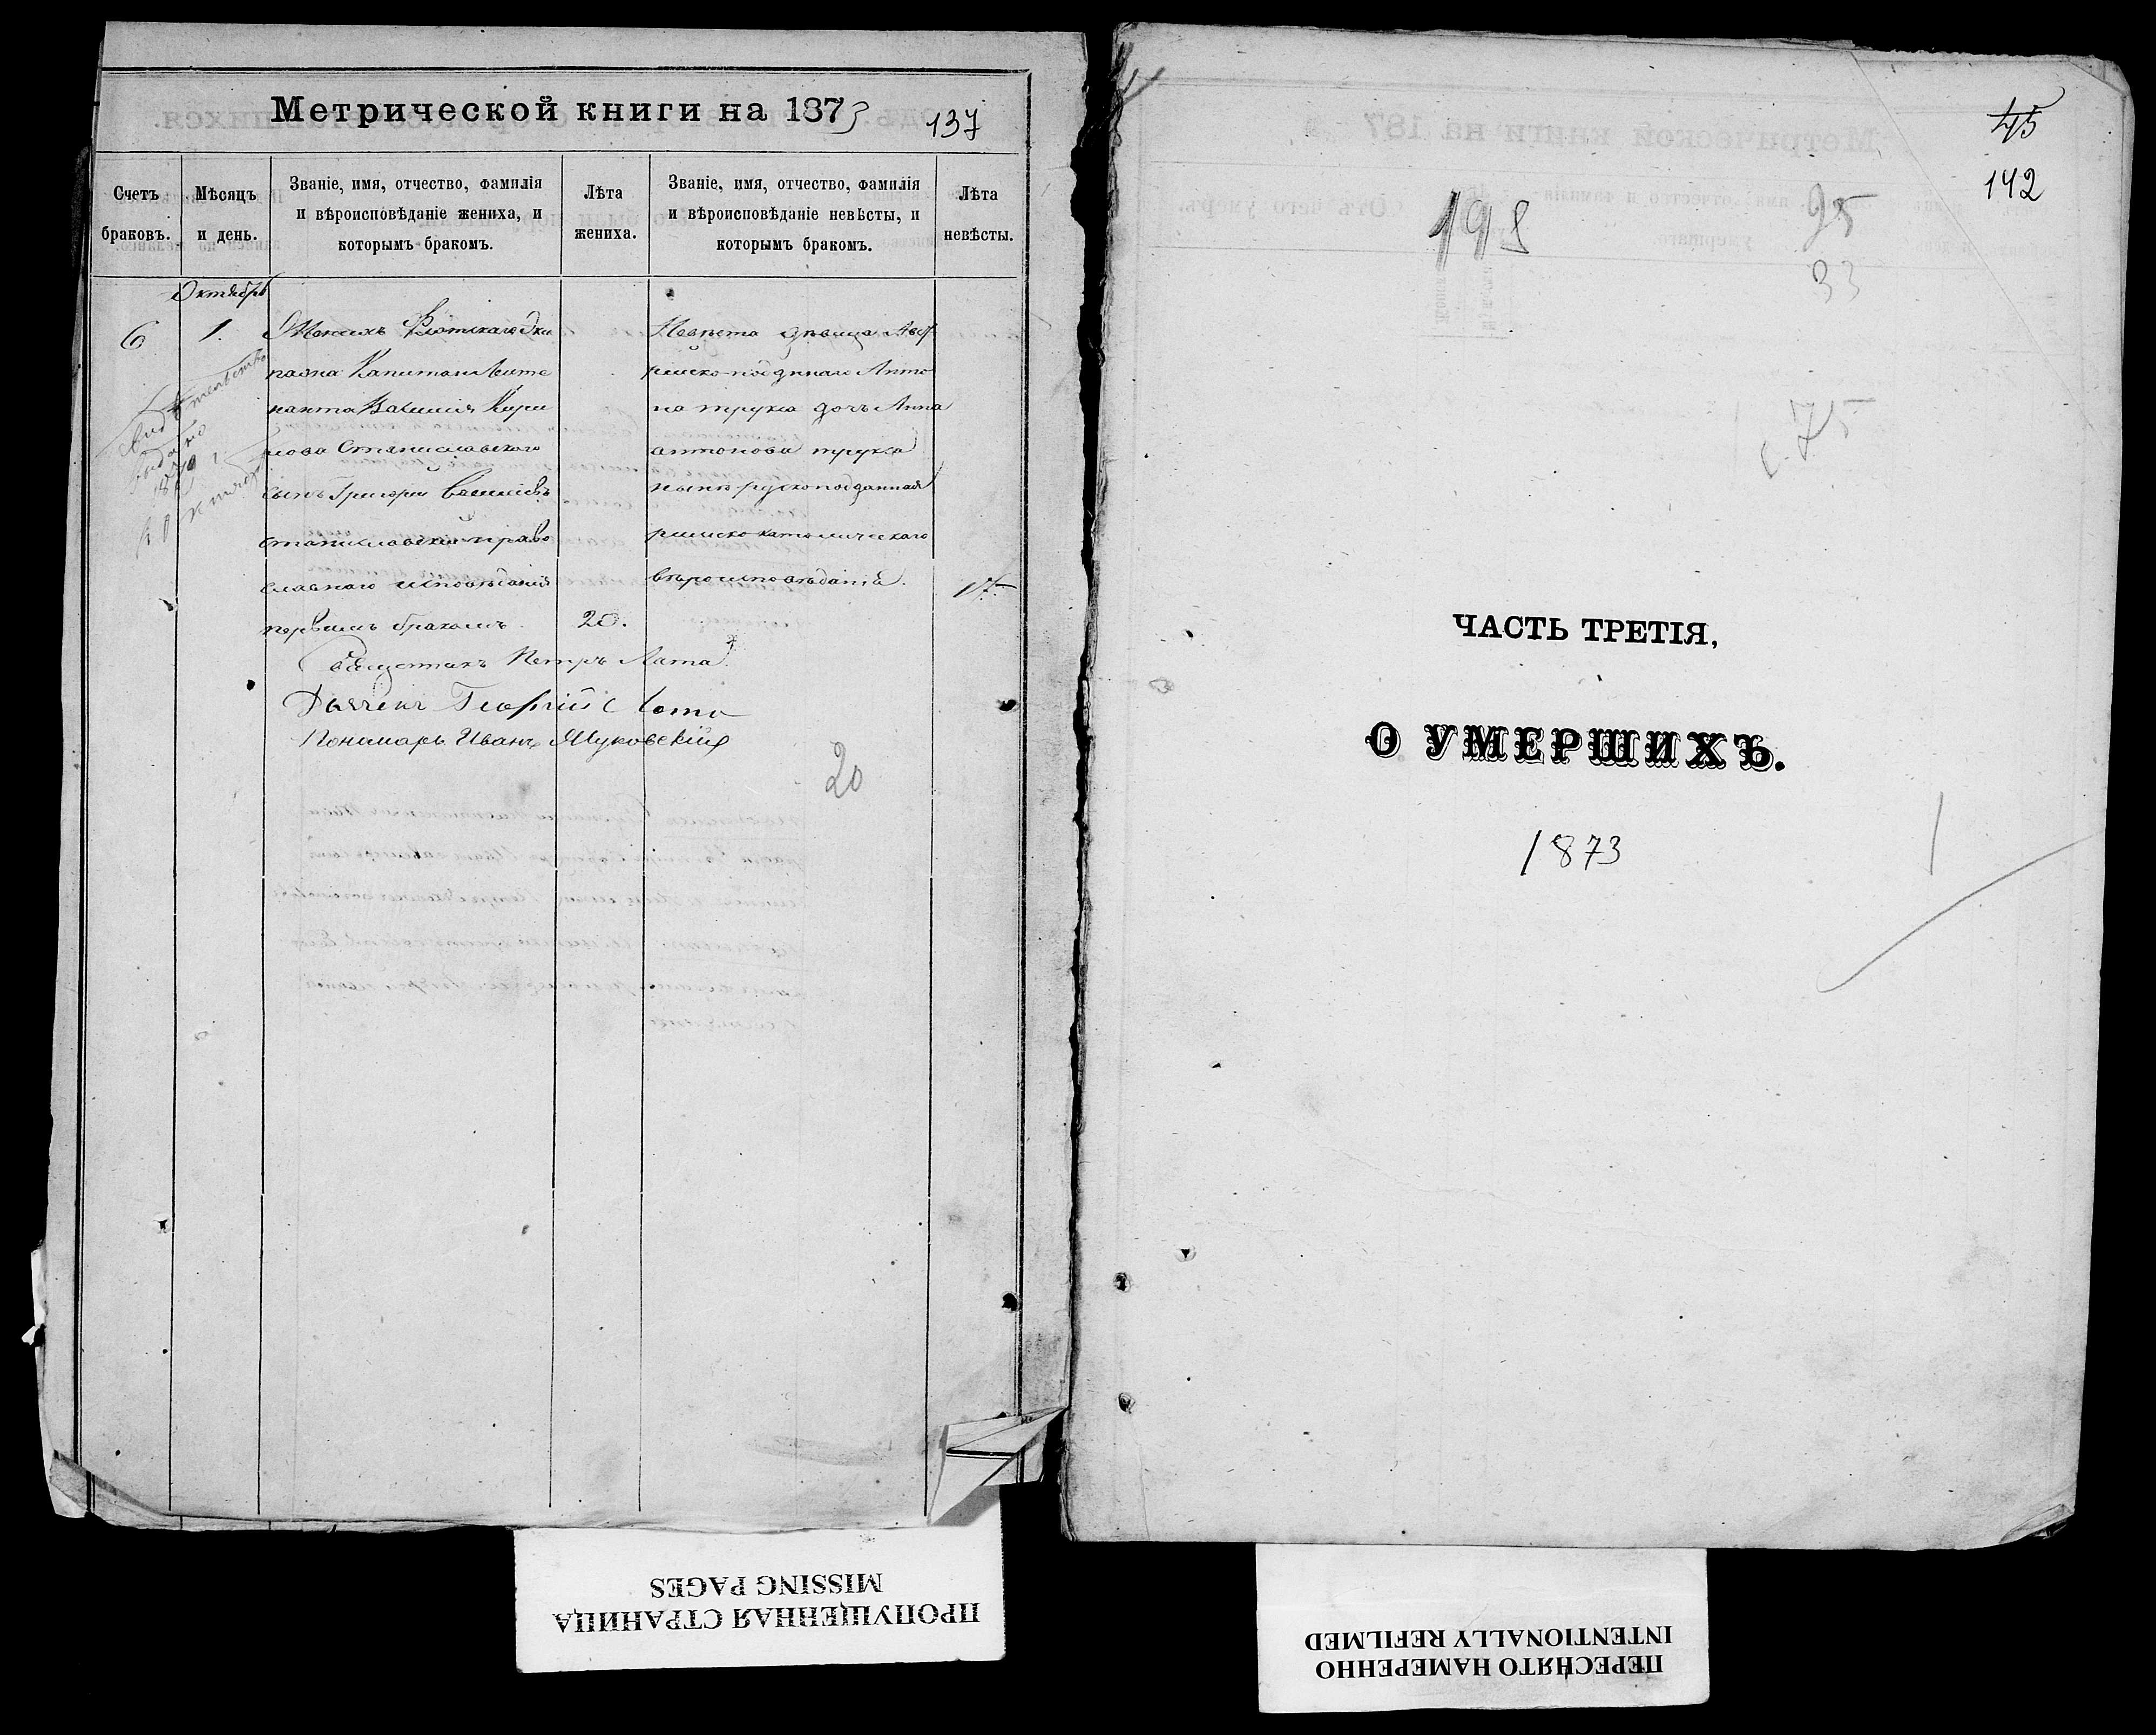 Метрической книги на 1873
137
Счетъ браковъ.
Мѣсяцъ и день.
Званіе, имя, отчество, фамилія и вѣроисповѣданіе жениха, и которымъ бракомъ.
Лѣта жениха.
Званіе, имя, отчество, фамилія и вѣроисповѣданіе невѣсты, и которымъ бракомъ.
Лѣта невѣсты.
Октябрь
6
1.
Женихъ Флотскаго Эки
пажа Капитана Лейте
нанта Василія Кири
лова Станиславскаго
сынъ Григорій Василіевъ
Станиславскій право
славнаго исповѣданія
первымъ бракомъ.
20.
Невѣста дѣвица Авст
рійско-подданаго Анто
на трукка дочь Анна
антонова трукка
нынѣ рускоподданная
римско католическаго
вѣроисповѣданія.
17
Священникъ Петръ Лата
Дьячекъ Георгій
Пономарь Иванъ Жуковскій
20
45
142
198
95
33
с. 75
ЧАСТЬ ТРЕТІЯ,
О УМЕРШИХЪ.
1873
ПРОПУЩЕННАЯ СТРАНИЦА
MISSING PAGES
ПЕРЕСНЯТО НАМЕРЕННО
INTENTIONALLY REFILMED